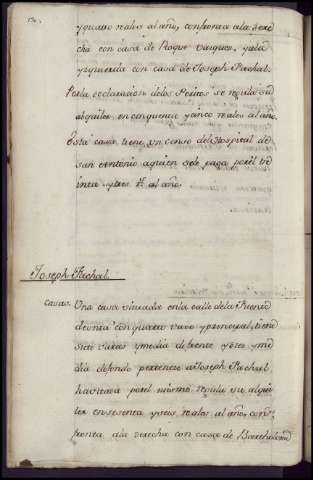 yquatro reales al año, confronta ala dere
cha con casa de Roque Vazques, yala
yzquierda con casa de Joseph Pachal.
Por la declarazion delos Peritos se regula su
alquiler en cinquenta y cinco reales al año.
Esta casa tiene un censo del Hospital de
san Antonio aquien sele paga por el tre
inta ytres rs. al año.
Joseph Pachal.
Casas. Una casa situada en la calle dela Fuente
con quarto vajo yprincipal, tiene
siete varas ymedia de frente y seis, me
dia defondo pertenece a Joseph Pachal
havitada por el mismo regula su alqui
ler en sesenta yseis, reales al año, con
fronta ala derecha con casa de Barthalome